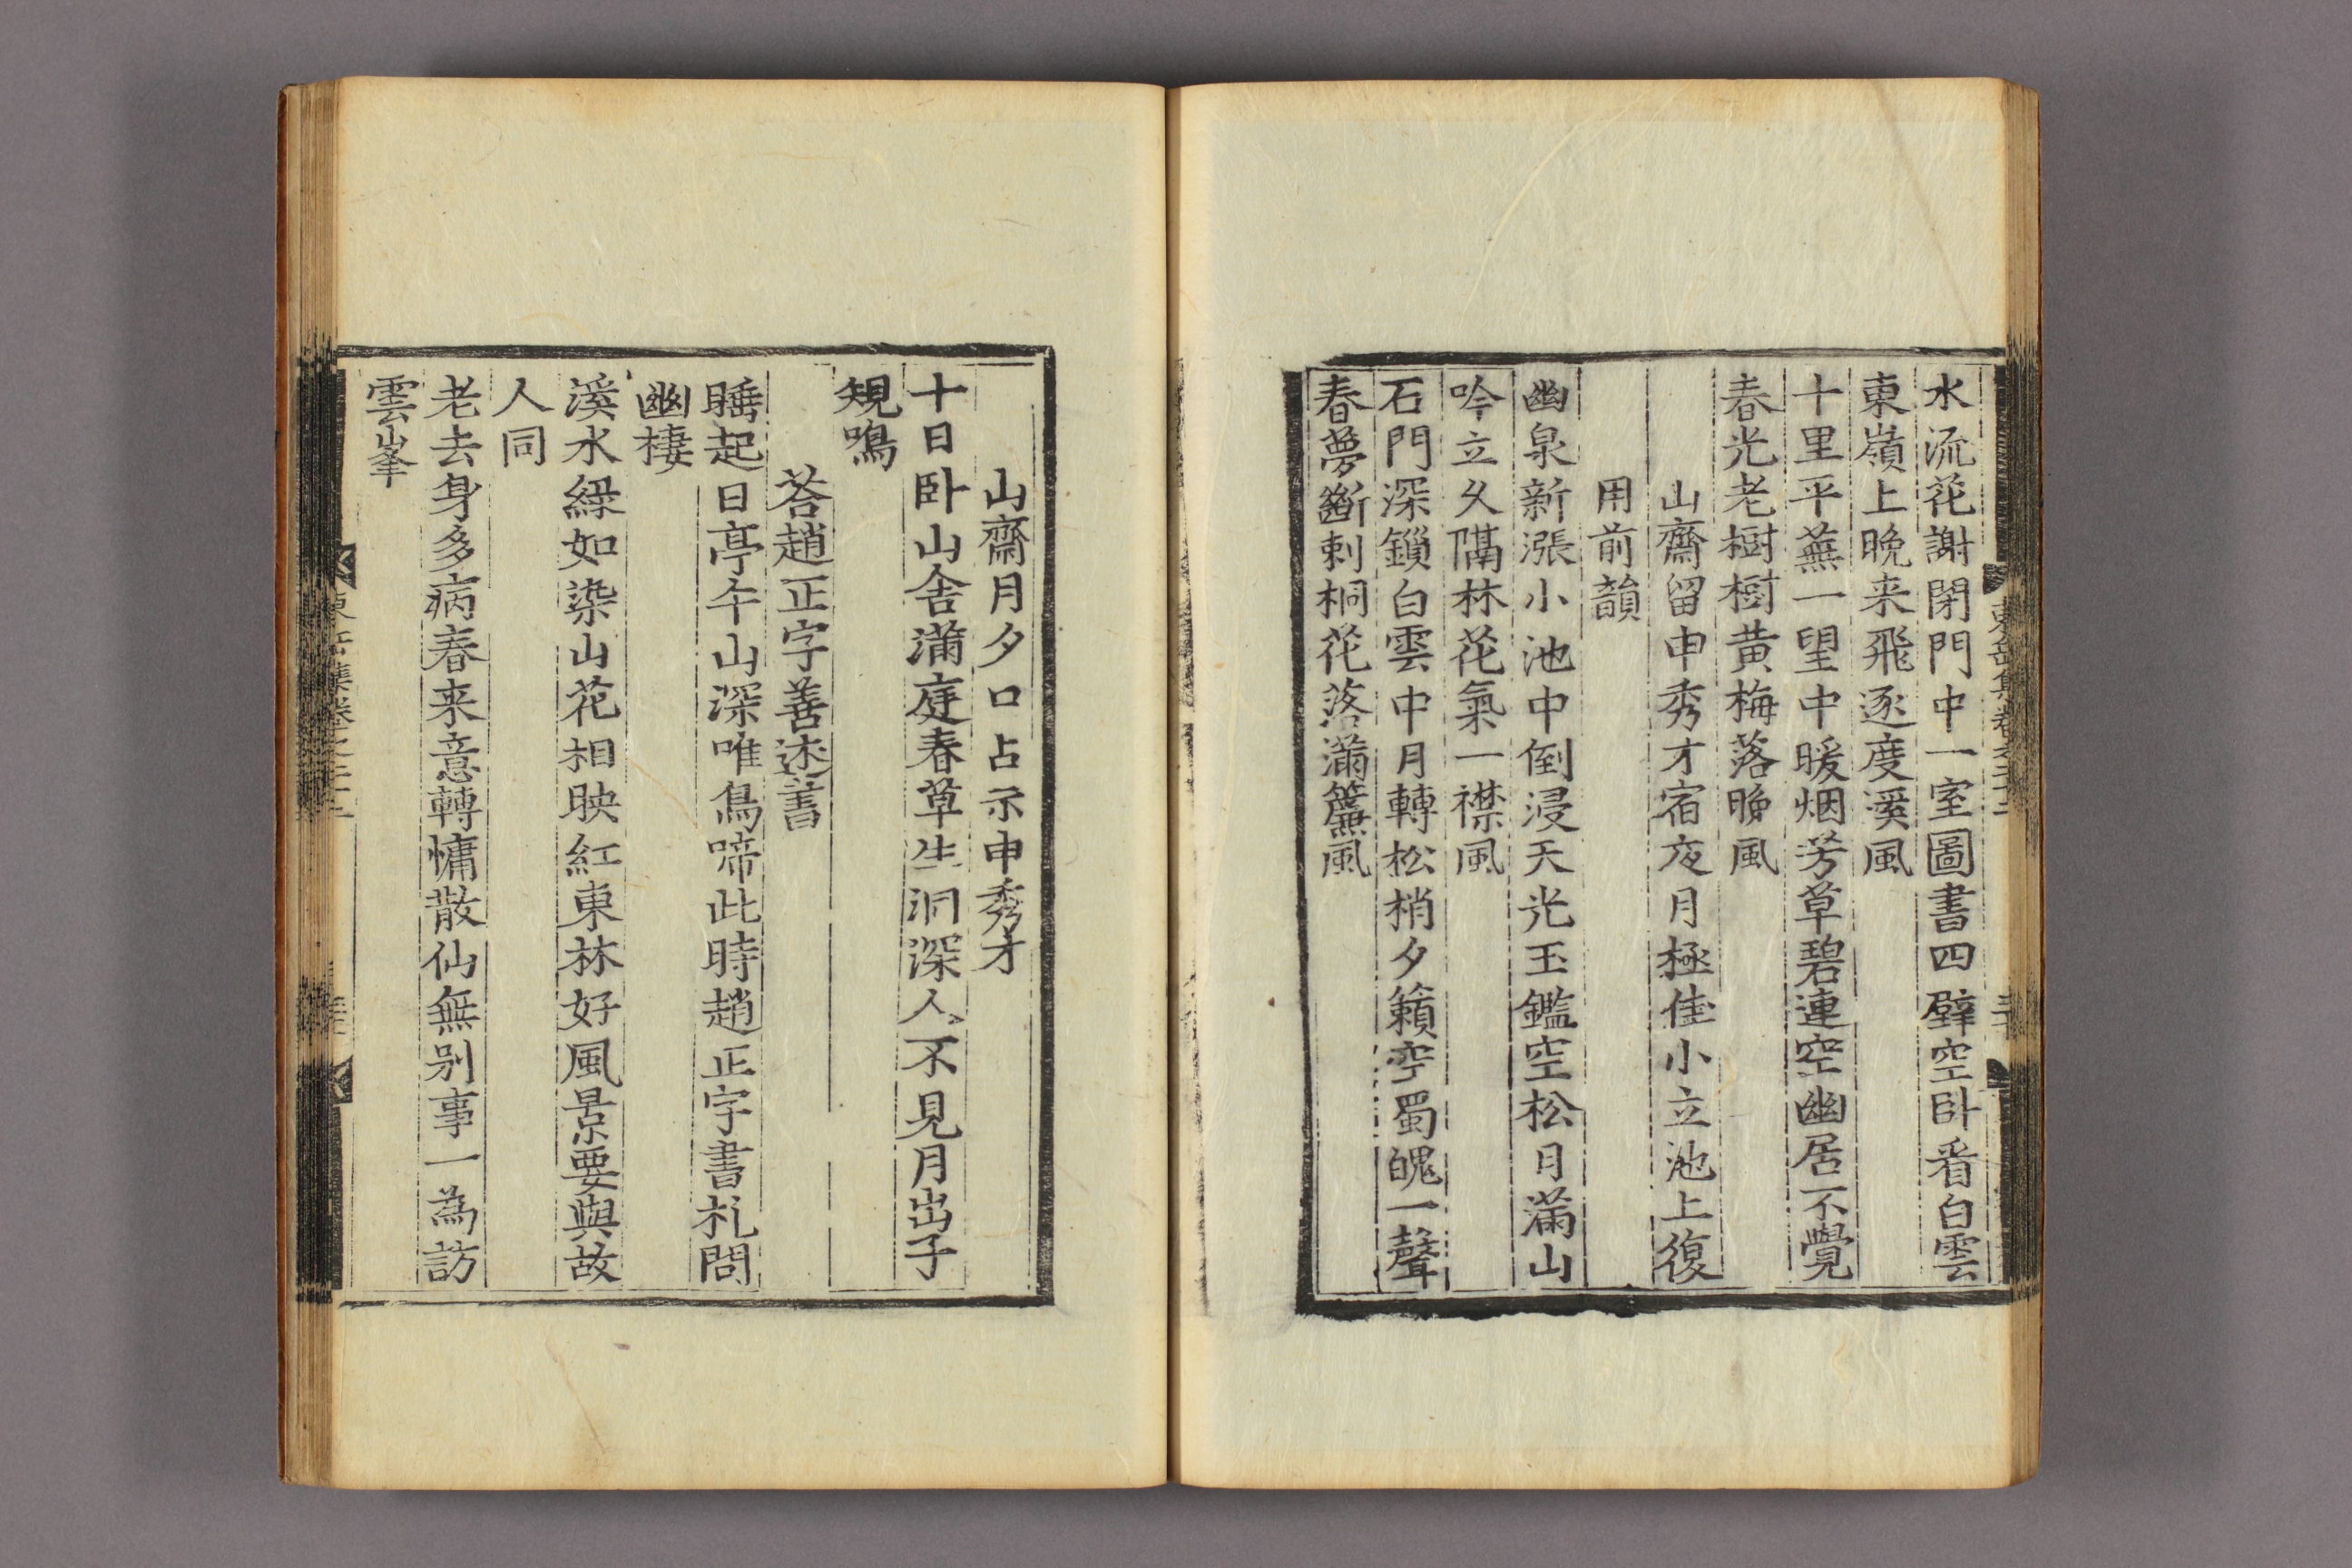 水流花謝閉門中一室圖書四壁空卧看白雲
東嶺上晚来飛逐度溪風
十里平蕪一望中暖烟芳草碧連空幽居不覺
春光老樹樹黄梅落晩風
山齋留申秀才宿夜月極佳小立池上復
用前韻
幽泉新漲小池中倒浸天光玉鑑空松月滿山
吟立久隔林花氣一襟風
石門深鎖白雲中月轉松梢夕籟空蜀魄一聲
春夢斷刺桐花落滿簾風
山齋月夕口占示申秀才
十日卧山舍滿庭春草生洞深人不見月出子
規鳴
荅趙正字善述書
睡起日亭午山深唯鳥啼此時趙正字書札問
幽棲
溪水綠如染山花相映紅東林好風景要與故
人同
老去身多病春来意轉慵散仙無别事一為訪
雲峯